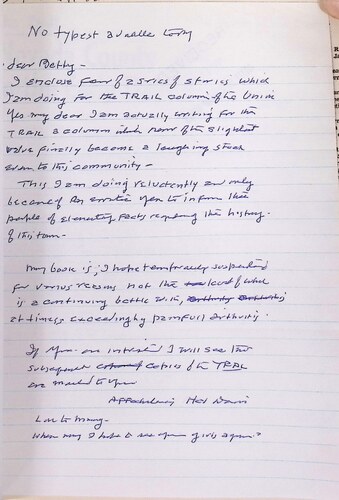 No typest available today
dear Betty -
I enclose four of a series of stories which
I am doing for the TRAIL column of the Union
Yes my dear I am actually writing for the
TRAIL a column which none of the slightest
value finally become a laughing stock
even to this community -
This I am doing reluctantly and only
because of an erratic yen to inform the
people of elementary facts regarding the history
of this town -
My book is, I hope temporarily suspended
for various reasons not the least of which
is a continuing battle with,
at times exceedingly painfull arthritis.
If you are interested I will see that
subsequent copies of the TRAIL
are mailed to you
Affectionately Hal
Love to
When may I hope to see you girls again?